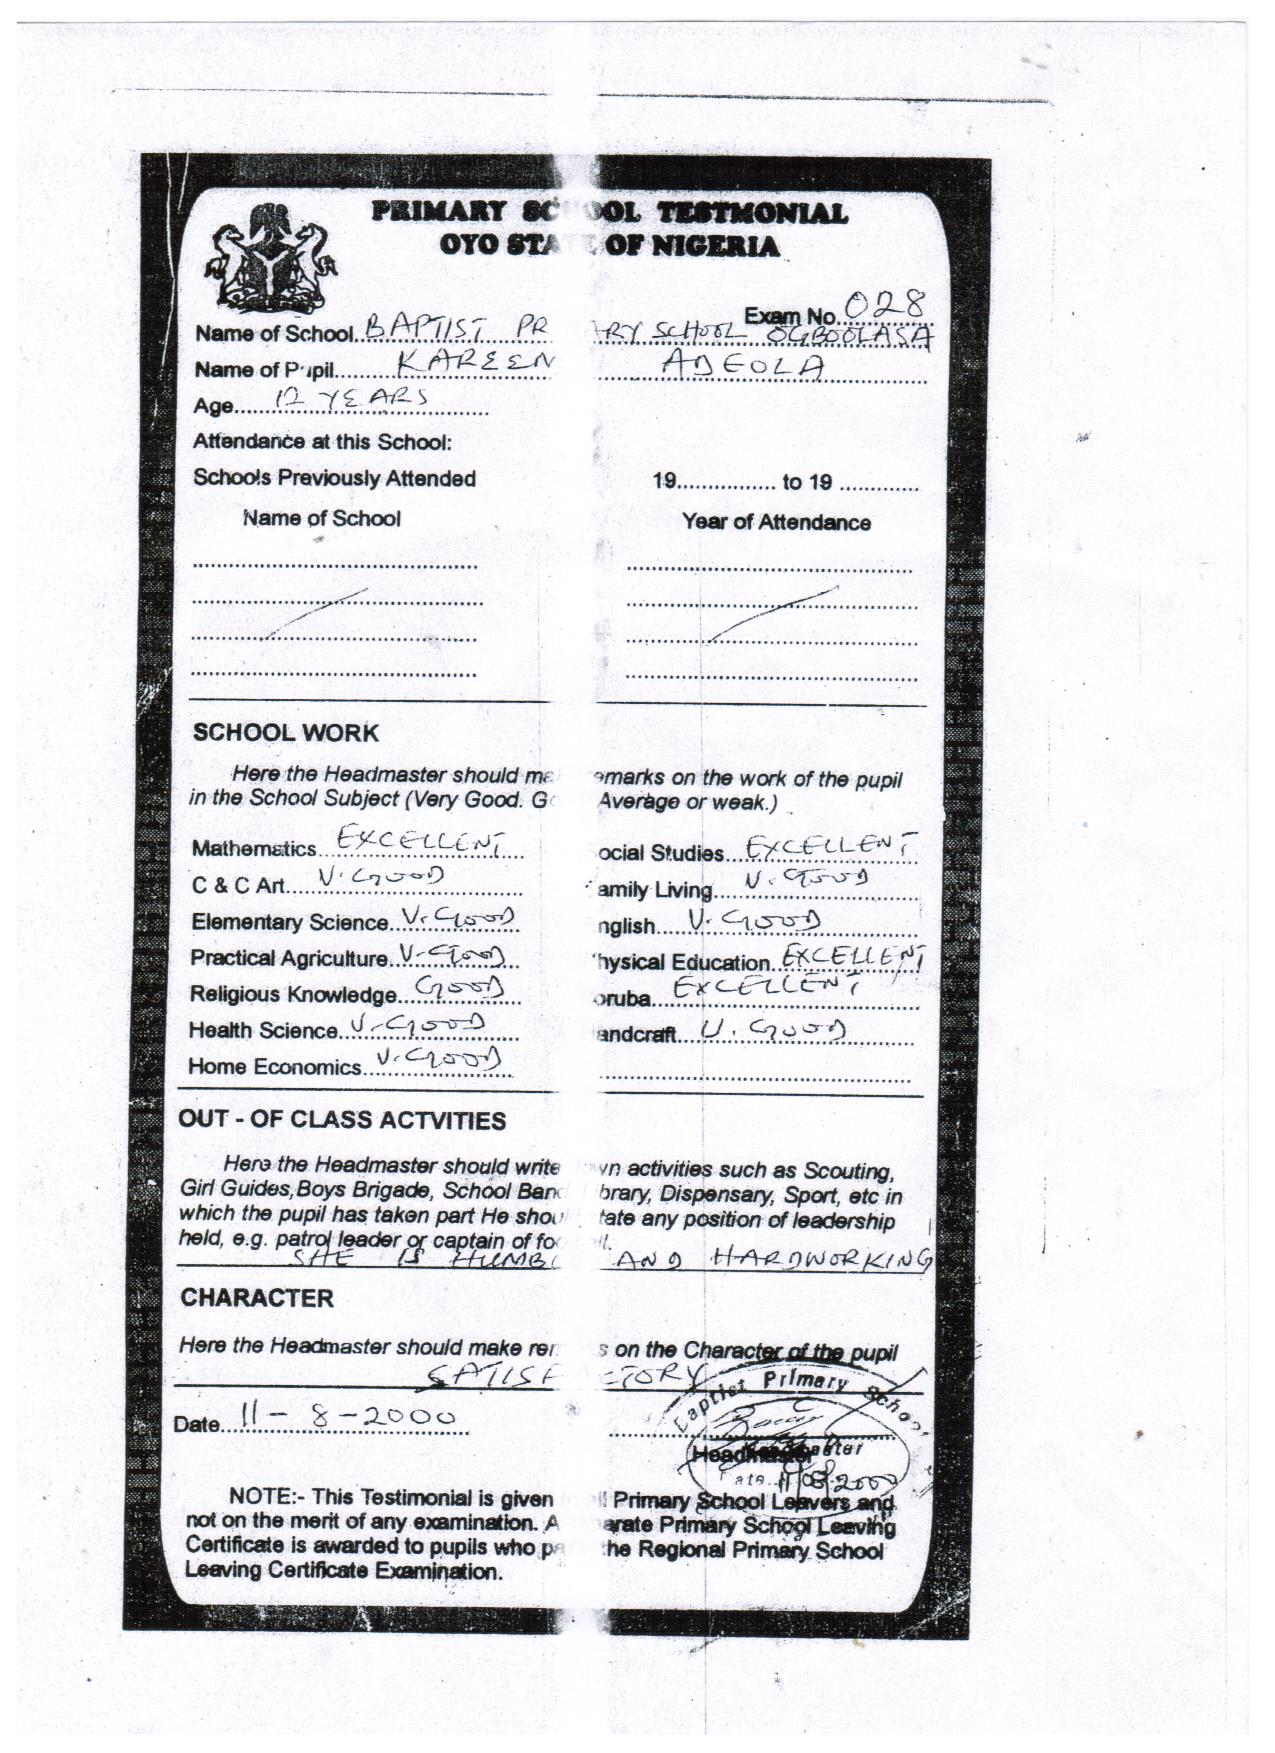 PRIMARY SC OOL TESTMONIAL
OYO STA E OF NIGERIA
Exam No. 028
Name of School. BAPTIST PR ARY SCHOOL OGBOOLASA
Name of Pupil KAREEN ADEOLA
Age 12 YEARS
Attendance at this School:
Schools Previously Attended 19 to 19
Name of School Year of Attendance
SCHOOL WORK
Here the Headmaster should ma emarks on the work of the pupil
in the School Subject (Very Good. Go Average or weak.)
Mathematics EXCELLENT ocial Studies EXCELLENT
C & C Art V. GOOD amily Living V. GOOD
Elementary Science V. GOOD nglish V. GOOD
Practical Agriculture V. GOOD hysical Education EXCELLENT
Religious Knowledge GOOD oruba EXCELLENT
Health Science V. GOOD andcraft V. GOOD
Home Economics V. GOOD
OUT - OF CLASS ACTVITIES
Here the Headmaster should write wn activities such as Scouting,
Girl Guides, Boys Brigade, School Band brary, Dispensary, Sport, etc in
which the pupil has taken part He shou tate any position of leadership
held, e.g. patrol leader or captain of fo ll.
SHE IS HUMBL AND HARDWORKING
CHARACTER
Here the Headmaster should make rem s on the Character of the pupil
SATISF CTORY
Baptist Primary School
Date 11 - 8 - 2000
Headmaster
Date 11/08/2000
NOTE:- This Testimonial is given ll Primary School Leavers and
not on the merit of any examination. A arate Primary School Leaving
Certificate is awarded to pupils who pa he Regional Primary School
Leaving Certificate Examination.